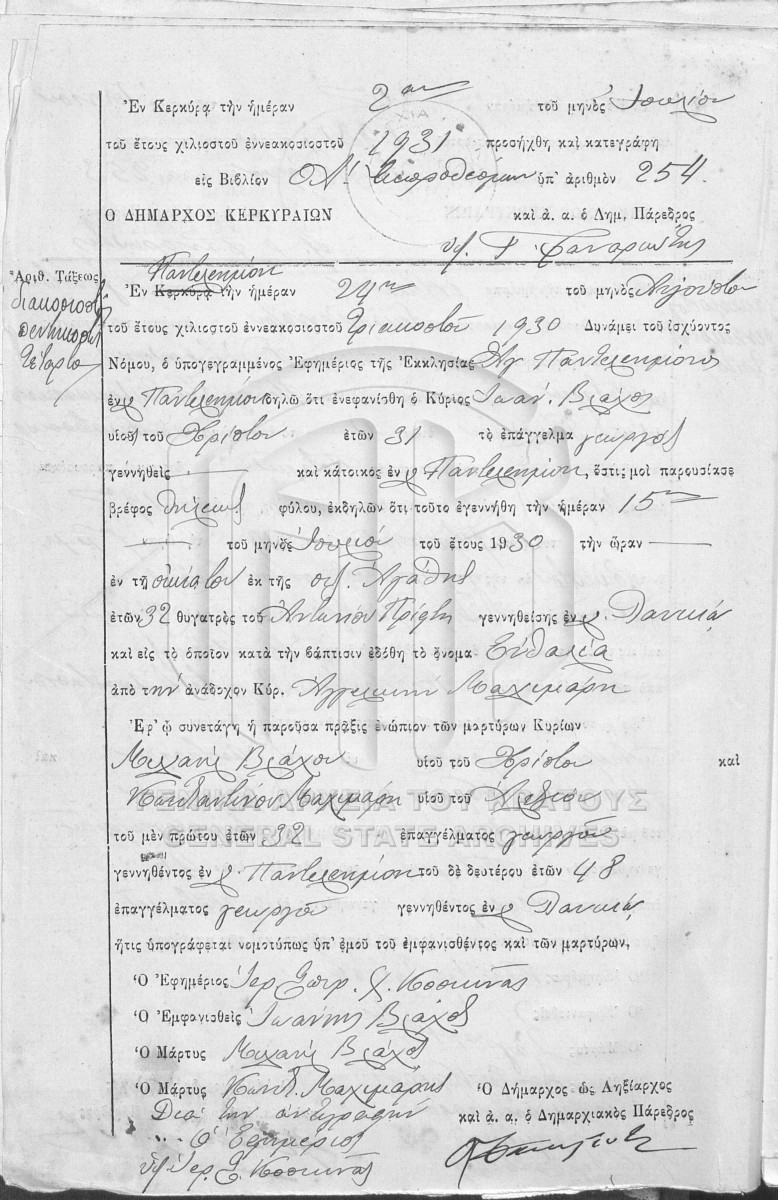 Ἐν Κερκύρᾳ τὴν ἡμέραν 2αν τοῦ μηνὸς Ἰουλίου
τοῦ ἔτους χιλιοστοῦ ἐννεακοσιοστοῦ 1931 προσήχθη καὶ κατεγράφη
εἰς Βιβλίον ΟΛ. Ἐκπροθέσμων ὑπ' ἀριθμὸν 254.
Ο ΔΗΜΑΡΧΟΣ ΚΕΡΚΥΡΑΙΩΝ καὶ ἀ. α. ὁ Δημ. Πάρεδρος
Παντελεήμων
Ἀριθ. Τάξεως
διακοσιοστὸν
πεντηκοστὸν
τέταρτον
Ἐν Κερκύρᾳ τὴν ἡμέραν 24ην τοῦ μηνὸς Αὐγούστου
τοῦ ἔτους χιλιοστοῦ ἐννεακοσιοστοῦ τριακοστοῦ 1930 Δυνάμει τοῦ ἰσχύοντος
Νόμου, ὁ ὑπογεγραμμένος Ἐφημέριος τῆς Ἐκκλησίας Ἁγ Παντελεήμονος
ἐν Παντελεήμονι δηλῶ ὅτι ἐνεφανίσθη ὁ Κύριος Ἰωάν. Βλάχος
υἱὸς τοῦ Χρίστου ἐτῶν 31 τὸ ἐπάγγελμα γεωργὸς
γεννηθεὶς καὶ κάτοικος ἐν Παντελεήμονι, ὅστις μοὶ παρουσίασε
βρέφος θήλεος φύλου, ἐκδηλῶν ὅτι τοῦτο ἐγεννήθη τὴν ἡμέραν 15ην
τοῦ μηνὸς Ἰουλίου τοῦ ἔτους 1930 τὴν ὥραν
ἐν τῇ οἰκίᾳ του ἐκ τῆς συζ. Ἀγάθης
ἐτῶν 32 θυγατρὸς τοῦ Ἀντωνίου Πρίφτη γεννηθείσης ἐν Δουκιά
καὶ εἰς τὸ ὁποῖον κατὰ τὴν βάπτισιν ἐδόθη τὸ ὄνομα Εὐθαλία
ἀπὸ τὴν ἀνάδοχον Κύρ. Ἀγγελικὴν Μαχιμάρη
Ἐφ' ᾧ συνετάγη ἡ παροῦσα πρᾶξις ἐνώπιον τῶν μαρτύρων Κυρίων
Μιχαὴλ Βλάχου υἱοῦ τοῦ Χρίστου καὶ
Κωνσταντίνου Μαχιμάρη υἱοῦ τοῦ Ἀλεξίου
ΓΕΝΙΚΑ ΑΡΧΕΙΑ ΤΟΥ ΚΡΑΤΟΥΣ
GENERAL STATE ARCHIVES
τοῦ μὲν πρώτου ἐτῶν 32 ἐπαγγέλματος γεωργοῦ
γεννηθέντος ἐν Παντελεήμονι τοῦ δὲ δευτέρου ἐτῶν 48
ἐπαγγέλματος γεωργοῦ γεννηθέντος ἐν Δουκιά,
ἥτις ὑπογράφεται νομοτύπως ὑπ' ἐμοῦ τοῦ ἐμφανισθέντος καὶ τῶν μαρτύρων,
Ὁ Ἐφημέριος Ἱερ. Σπυρ. Χ. Κοσκινᾶς
Ὁ Ἐμφανισθεὶς Ἰωάννης Βλάχος
Ὁ Μάρτυς Μιχαὴλ Βλάχος
Ὁ Μάρτυς Κωνστ. Μαχιμάρης Ὁ Δήμαρχος ὡς Ληξίαρχος
Διὰ τὴν ἀντιγραφὴν καὶ ἀ. α. ὁ Δημαρχιακὸς Πάρεδρος
Ὁ Ἐφημέριος
ὑπ. Ἱερ. Σ. Κοσκινᾶς